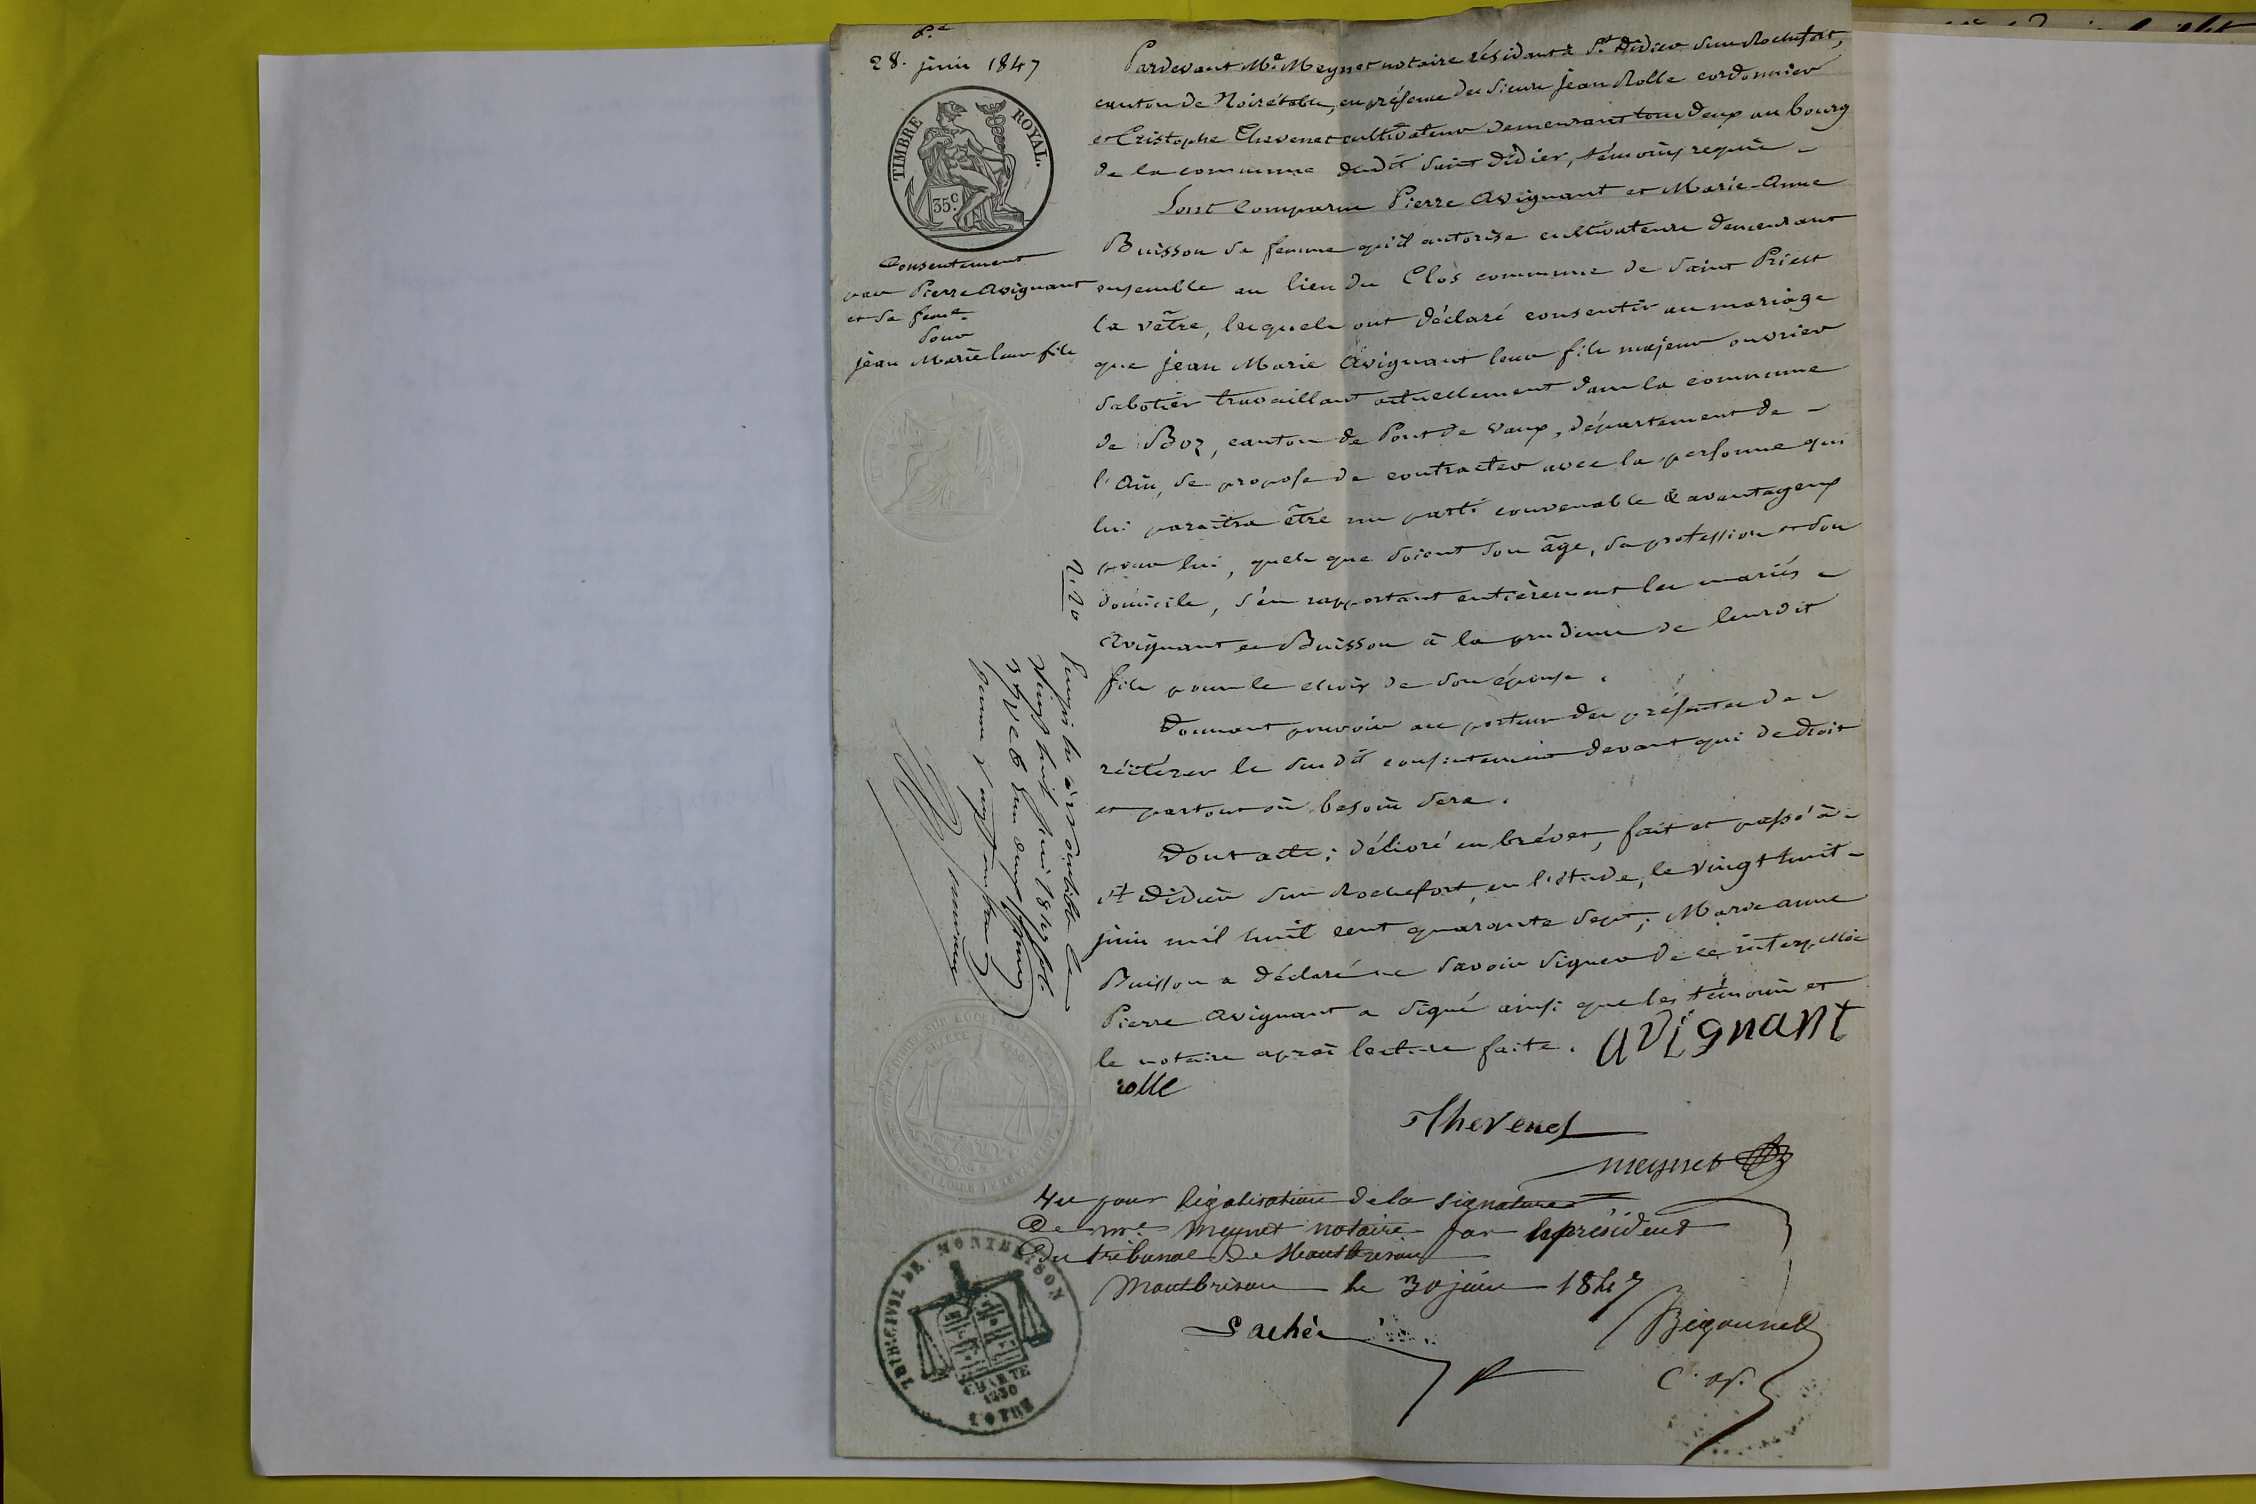 28. juin 1847
TIMBRE ROYAL.
35c
Consentement
par Pierre Avignant
et sa feme
pour
jean Marie leur fils
Pardevant Me Meynet notaire résidant à St Didier sur Rochefort,
canton de Noirétable, en présence des sieurs jean Rolle cordonnier
et Cristophe Thevenet cultivateur demeurant tous deux au bourg
de la commune dudit saint Didier, témoins requis
Sont comparus Pierre Avignant et Marie-Anne
Buisson sa femme qu'il autorise cultivateurs demeurant
ensemble au lieu du Clos commune de saint Priest
la vêtre, lesquels ont déclaré consentir au mariage
que jean Marie Avignant leur fils majeur ouvrier
sabotier travaillant actuellement dans la commune
de Boz, canton de Pont de Vaux, département de
l'Ain, se propose de contracter avec la personne qui
lui paraitra être un parti convenable & avantageux
pour lui, quels que soient son âge, sa profession et son
domicile, s'en rapportant entièrement les mariés
Avignant et Buisson à la prudence de leurdit
fils pour le choix de son épouse.
Donnant pouvoir au porteur des présentes de
réitérer le susdit consentement devant qui de droit
et partout où besoin sera.
Dont acte; délivré en brévet, fait et passé à
St Didier sur Rochefort, en l'étude, le vingt huit
juin mil huit cent quarante sept; Marie anne
Buisson a déclaré ne savoir signer de ce interpellée
Pierre Avignant a signé ainsi que les témoins et
le notaire après lecture faite.
avignant
rolle
Thevenet
meynet
2.20
vingt huit juin 1847 fol.
Vu pour légalisation de la signature
de me meynet notaire par le président
du tribunal de Montbrison
Montbrison le 30 juin 1847
TRIB. CIVIL DE MONTBRISON
CHARTE
1830
LOIRE